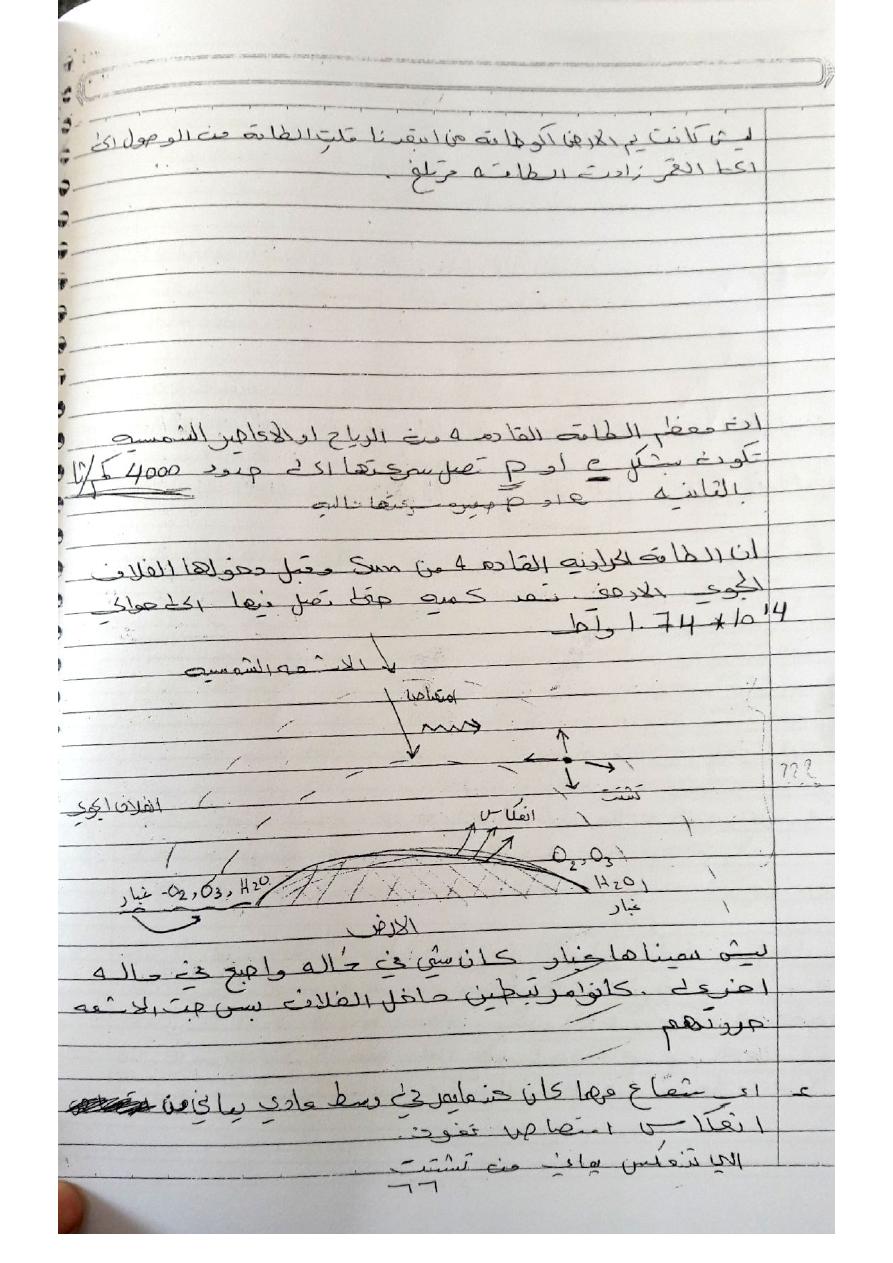 ليش كانت يم الارض اكو طاقة من ابتعدنا قلت الطاقة من الوصول الى
الى القمر زادت الطاقه
ان معظم الطاقة القادمة من الرياح او الاعاصير الشمسيه
تكون بشكل e أو p تصل سرعتها الى حدود 4000 كم/ثا
بالثانيه e او p سرعتها عاليه
ان الطاقة الحراريه القادمة من Sun وقبل دخولها الغلاف
الجوي الارضي كميه حتى تصل فيها الى حوالي
1.74 * 10^14 واط
الاشعه الشمسيه
امتصاص
???
تشتت
الغلاف الجوي
انعكاس
O2, O3
غبار -O2, O3, H2O
H2O,
غبار
الارض
ليش سميناها غبار كان شي في حاله واصبح في حاله
اخرى. كانوا مرتبطين داخل الغلاف بس جت الاشعه
حررتهم
اي شعاع مهما كان عندما يمر في وسط مادي يعاني من
انعكاس امتصاص نفوذ.
الي تنعكس يعاني من تشتت
٦٦